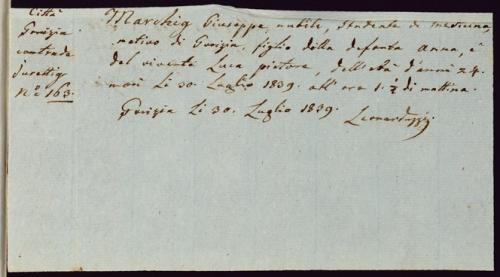 Città
Gorizia
contrada
Nº 163.
Marchig Giuseppe, nubile, studente di medicina,
nativo di Gorizia, figlio della defonta Anna, e
del vivente Luca pistore, dell'età d'anni 24.
morì Li 30. Luglio 1839. all'ora 1. ½ di mattina.
Gorizia Li 30. Luglio 1839.